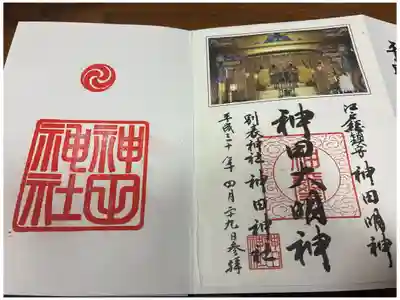 江戸総鎮守 神田明神
神田大明神
別表神社 神田神社
平成三十年四月二十九日参拝
神田神社